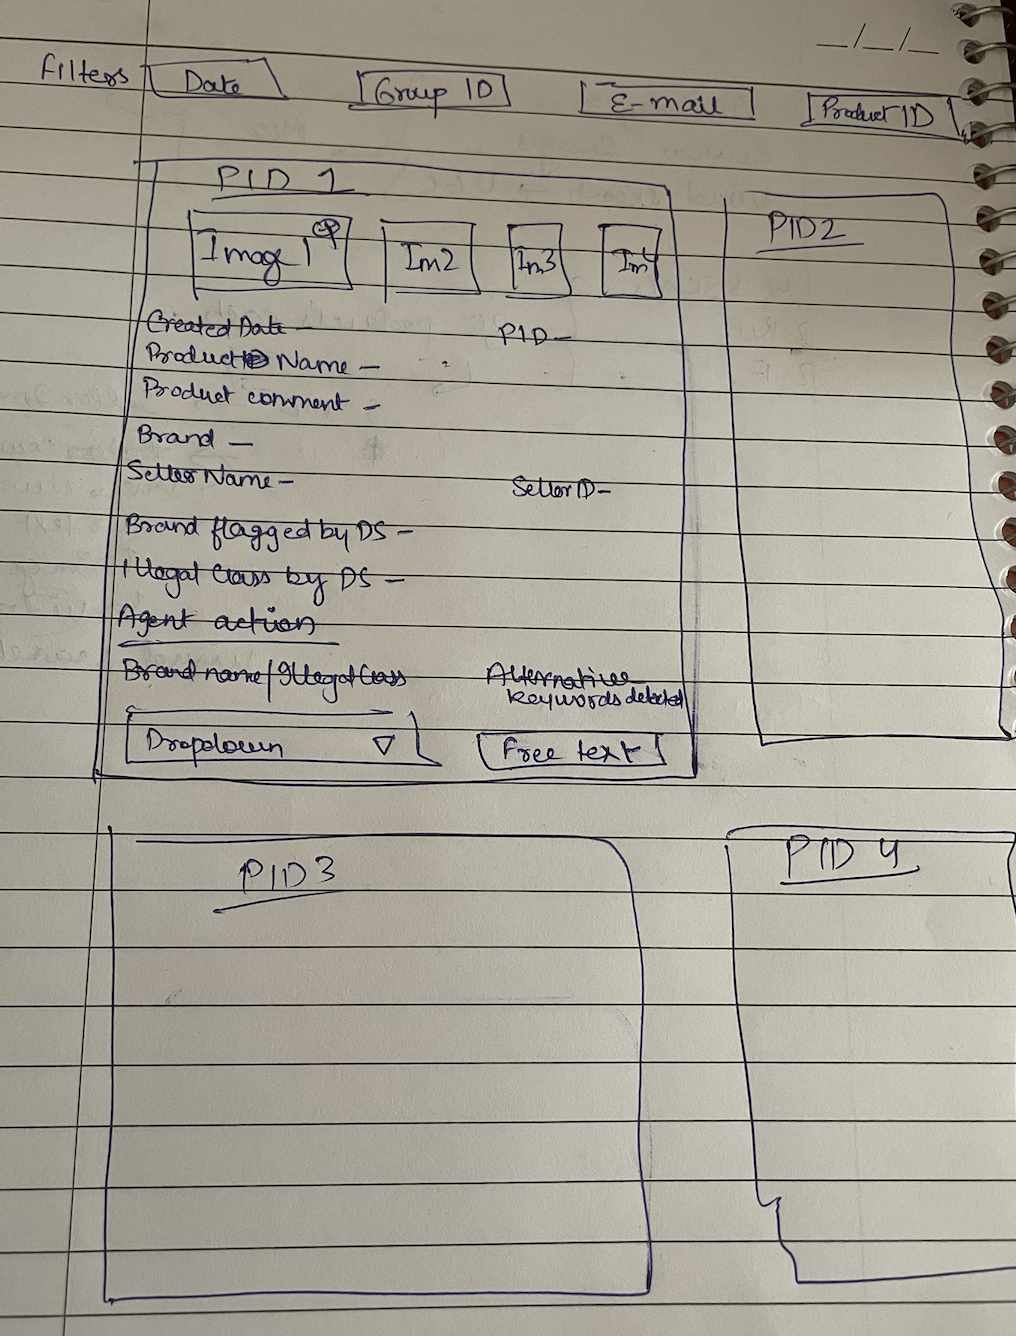 _/_/_
Filters Date Group ID E-mail Product ID
PID 1
Image 1 Im2 Im3 Im4
Created Date - PID -
Product Name -
Product comment -
Brand -
Seller Name - Seller ID -
Brand flagged by DS -
Illegal Class by DS -
Agent action
Brand name / Illegal Class Alternative
keywords detected
Dropdown ▽ Free text
PID2
PID3
PID 4